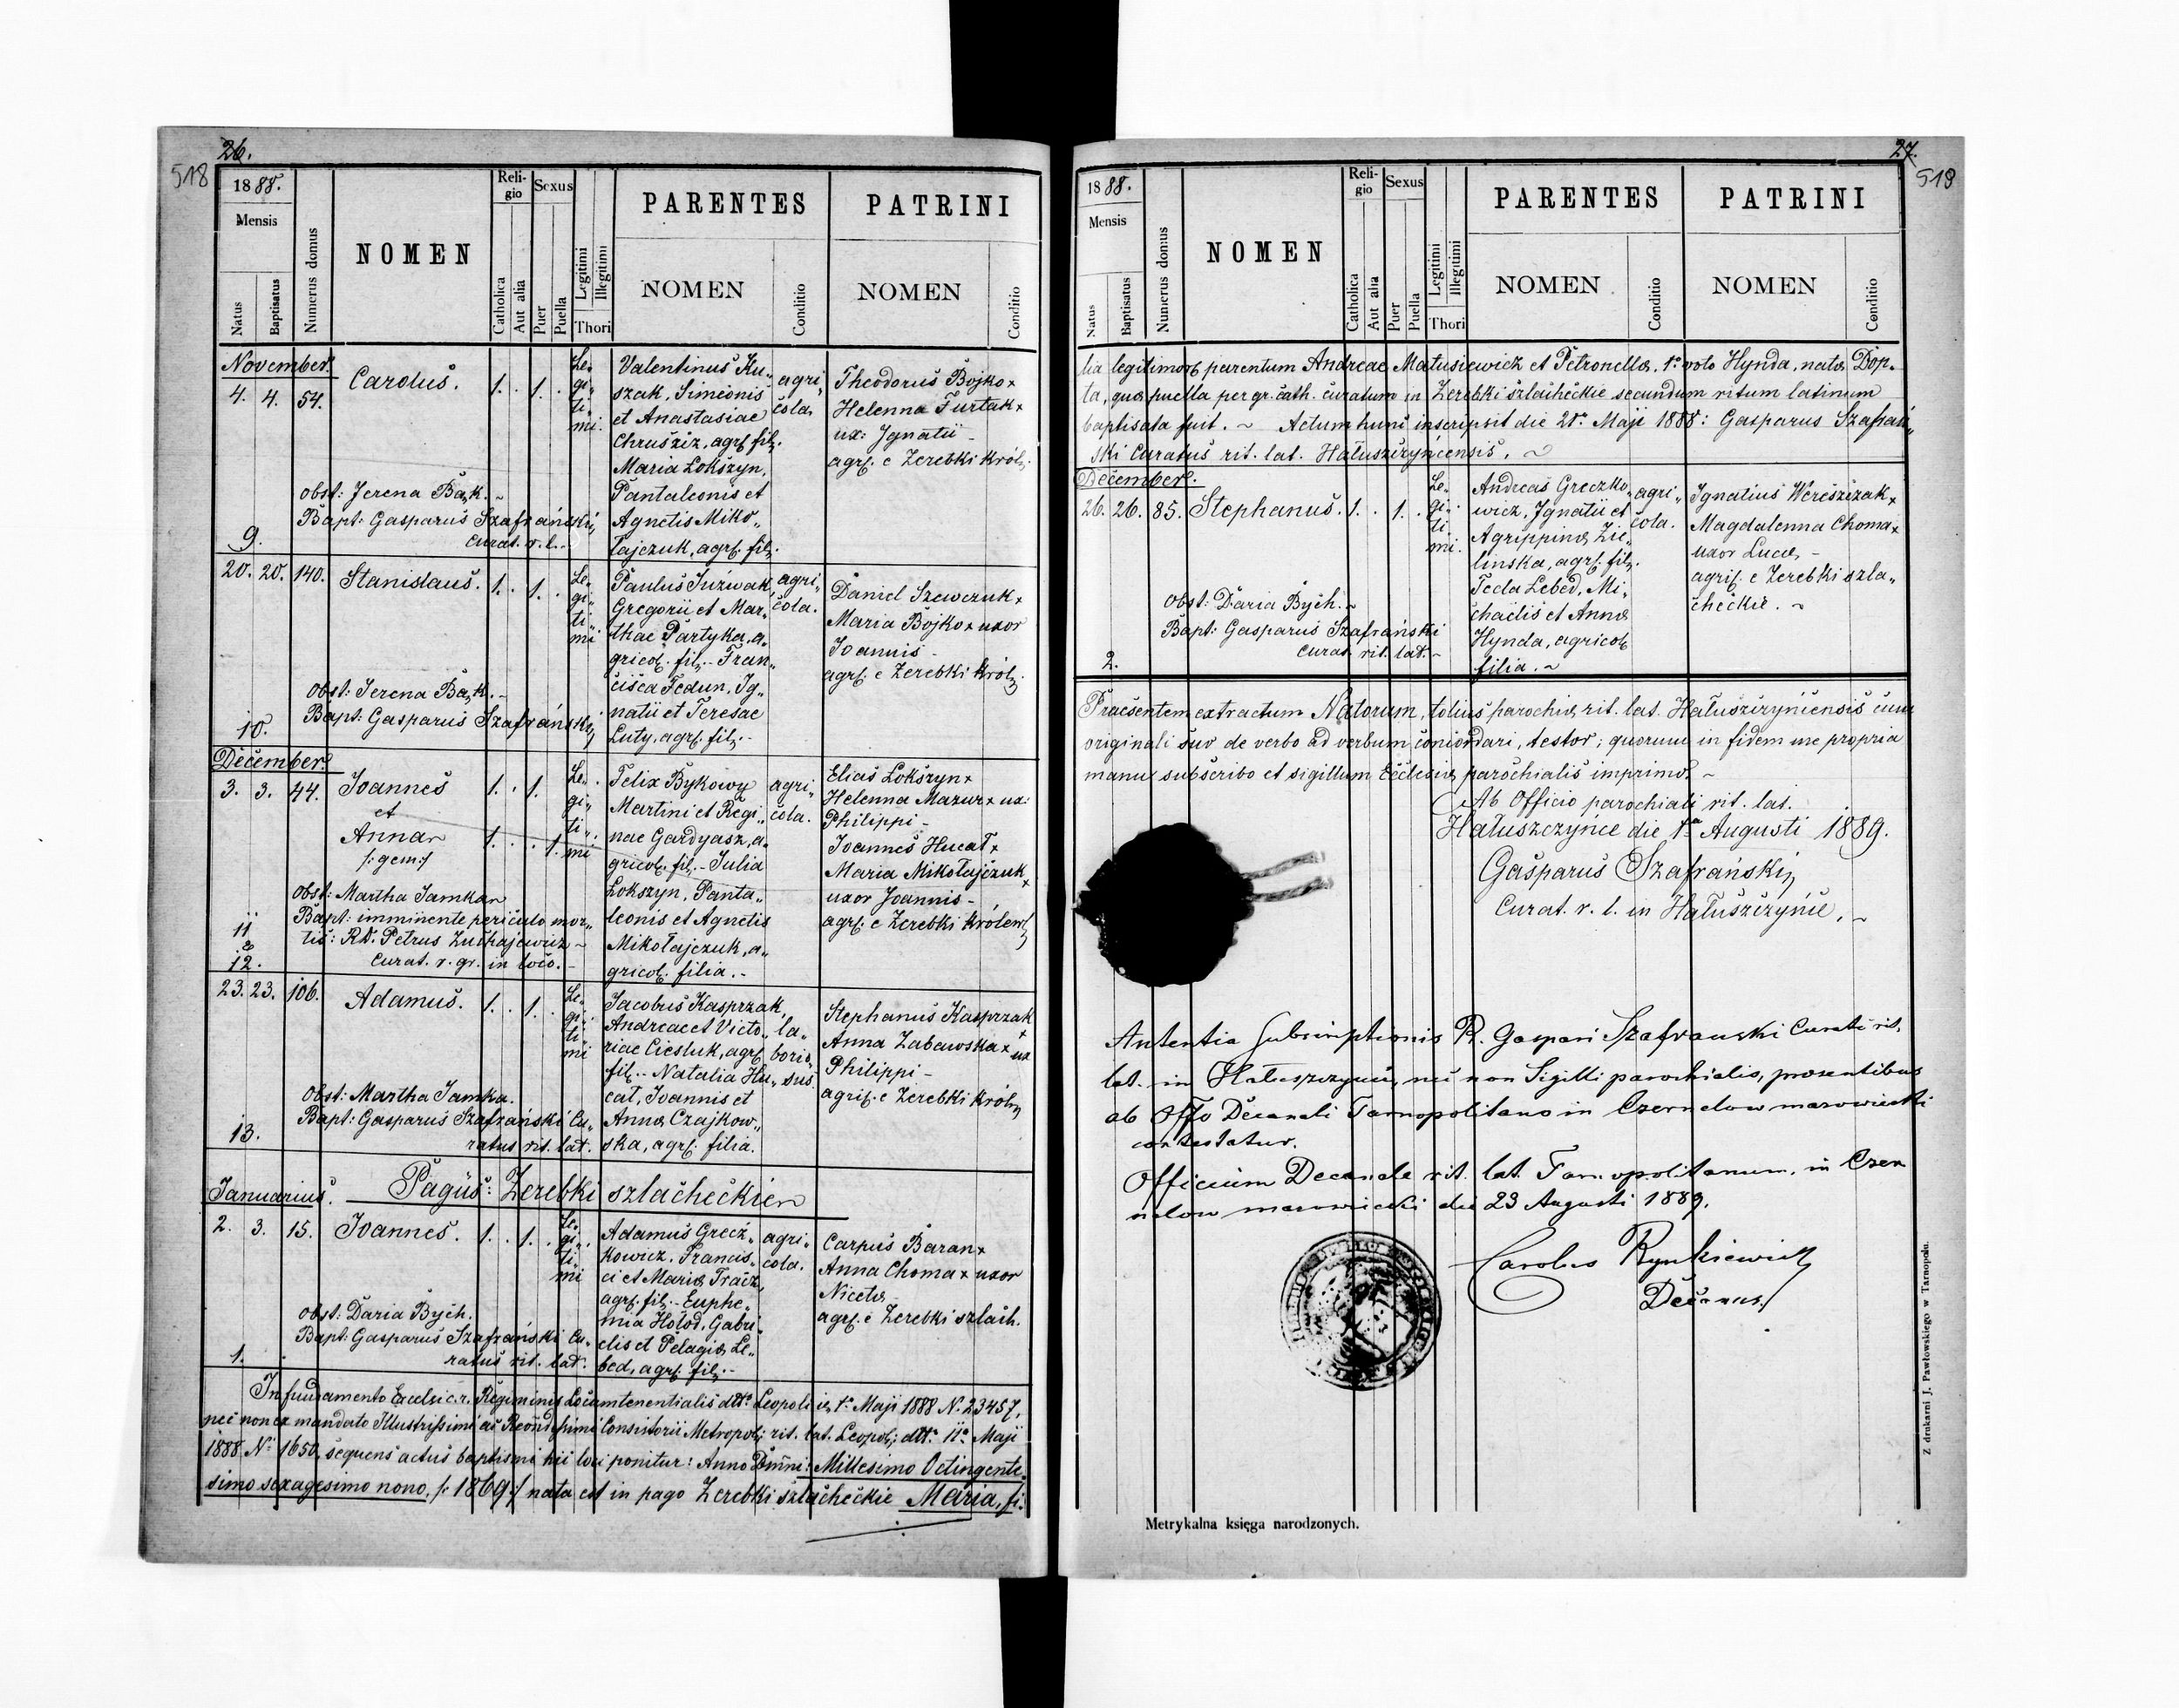 26.
518
1888.
Mensis
Natus
Baptisatus
Numerus domus
NOMEN
Reli-
gio
Catholica
Aut alia
Sexus
Puer
Puella
Legitimi
Illegitimi
Thori
PARENTES
NOMEN
Conditio
PATRINI
NOMEN
Conditio
November.
4. 4. 54. Carolus. 1. . 1. .
Le„
gi„
ti„
mi.
Valentinus Ku„
szak, Simeonis
et Anastasiae
Chruścz, agr. fil.
Maria Lokszyn,
Pantaleonis et
Agnetis Miko„
łajczuk, agr. fil.
agri„
cola.
Theodorus Bojko x
Helenna Furtak x
ux: Ignatii -
agr. e Zerebki Król.
obst: Jerena Bąk.
Bapt: Gasparus Szafrański,
curat. r. l.
9.
20. 20. 140. Stanislaus. 1. . 1. .
Le„
gi„
ti„
mi
Paulus Juźwak,
Gregorii et Mar„
thae Partyka, a„
gricol. fil. - Fran„
cisca Fedun, Ig„
natii et Teresae
Luty, agr. fil. -
agri„
cola.
Daniel Szewczuk x
Maria Bojko x uxor
Joannis -
agr. e Zerebki Król.
obst: Jerena Bąk. -
Bapt: Gasparus Szafrański
10.
December.
3. 3. 44. Joannes 1. . 1.
et
Anna 1. . . 1.
/: gem :/
Le„
gi„
ti„
mi
Felix Bykowy
Martini et Regi„
nae Gardyasz, a„
gricol. fil. - Julia
Lokszyn, Panta„
leonis et Agnetis
Mikołajczuk, a„
gricol. filia. -
agri„
cola.
Elias Lokszyn x
Helenna Mazur x ux:
Philippi -
Joannes Hucał x
Maria Mikołajczuk x
uxor Joannis -
agr. e Zerebki Królew.
obst: Martha Jamka
Bapt: imminente periculo mor„
tis: RD. Petrus
Curat. r. gr. in loco. -
11
&
12.
23. 23. 106. Adamus. 1. . 1. .
Le„
gi„
ti„
mi
Jacobus Kasprzak,
Andreae et Victo„
riae Ciesluk, agr.
fil. - Natalia Hu„
cał, Joannis et
Annae Czajkow„
ska, agr. filia.
la„
borio„
sus.
Stephanus Kasprzak
x
Anna Zabawska x ux
Philippi -
agri. e Zerebki Król.
obst: Martha Jamka.
Bapt: Gasparus Szafrański Cu„
ratus rit. lat.
13.
Januarius. Pagus: Zerebki szlacheckie
2. 3. 15. Joannes. 1. . 1. .
Le„
gi„
ti„
mi
Adamus Grecz„
kowicz, Francis„
ci et Mariae Tracz,
agr. fil. - Euphe„
mia Hołod, Gabri„
elis et Pelagiae Le„
bed, agr. fil. -
agri„
cola.
Carpus Baran x
Anna Choma x uxor
Nicetae -
agr. e Zerebki szlach.
obst: Daria Bych.
Bapt: Gasparus Szafrański Cu„
ratus rit. lat.
1.
In fundamento Excelsi c. r. Regiminis Locumtenentialis ddto Leopoli 1a Maji 1888 N. 23457,
nec non ex mandato Illustrissimi ac Consistorii Metropol. rit. lat. Leopol. ddto 11a Maji
1888 Ni 1650, sequens actus baptismi hii loci ponitur: Anno Domni: Millesimo Octingente„
simo sexagesimo nono, /: 1869 :/ nata est in pago Zerebki szlacheckie Maria, fi„
27.
519
1888.
Mensis
Natus
Baptisatus
Numerus domus
NOMEN
Reli-
gio
Catholica
Aut alia
Sexus
Puer
Puella
Legitimi
Illegitimi
Thori
PARENTES
NOMEN
Conditio
PATRINI
NOMEN
Conditio
lia legitimor. parentum Andreae Matusiewicz et Petronellae, 1o voto Hynda, natae Dop„
ta, quae puella per gr. cath. curatum in Zerebki szlacheckie secundum ritum latinum
baptisata fuit. ~ Actum hunc inscripsit die 21a Maji 1888: Gasparus Szafrań„
ski Curatus rit. lat. Hałuszczyńcensis. ~
December.
26. 26. 85. Stephanus. 1. . 1. .
Le„
gi„
ti„
mi.
Andreas Greczko„
wicz, Ignatii et
Agrippinae Zie„
linska, agr. fil.
Tecla Lebed, Mi„
chaelis et Annae
Hynda, agricol.
filia. ~
agri„
cola.
Ignatius Wereszczak x
Magdalenna Choma x
uxor Lucae -
agri. e Zerebki szla„
checkie. ~
Obst: Daria Bych. ~
Bapt: Gasparus Szafrański
Curat. rit. lat. ~
2.
Praesentem extractum Natorum, totius parochiae rit. lat. Hałuszczyńcensis cum
originali suo de verbo ad verbum concordari, testor; quorum in fidem me propria
manu subscribo et sigillum Ecclesiae parochialis imprimo. ~
Ab Officio parochiali rit. lat.
Hałuszczyńce die 1a Augusti 1889.
Gasparus Szafrański,
Curat. r. l. in Hałuszczyńce. ~
Autentia Subscriptionis R. Gaspari Szafranski Curati rit.
lat. in Hałuszczyńce, nec non Sigilli parochialis, praesentibus
ab Offo Decanali Tarnopolitano in Czernelow mazowiecki
contestatur.
Officium Decanale rit. lat. Tarnopolitanum, in Czer
nelow mazowiecki die 23 Augusti 1889.
Carolus Rynkiewicz
Decanus
Metrykalna księga narodzonych.
Z drukarni J. Pawłowskiego w Tarnopolu.